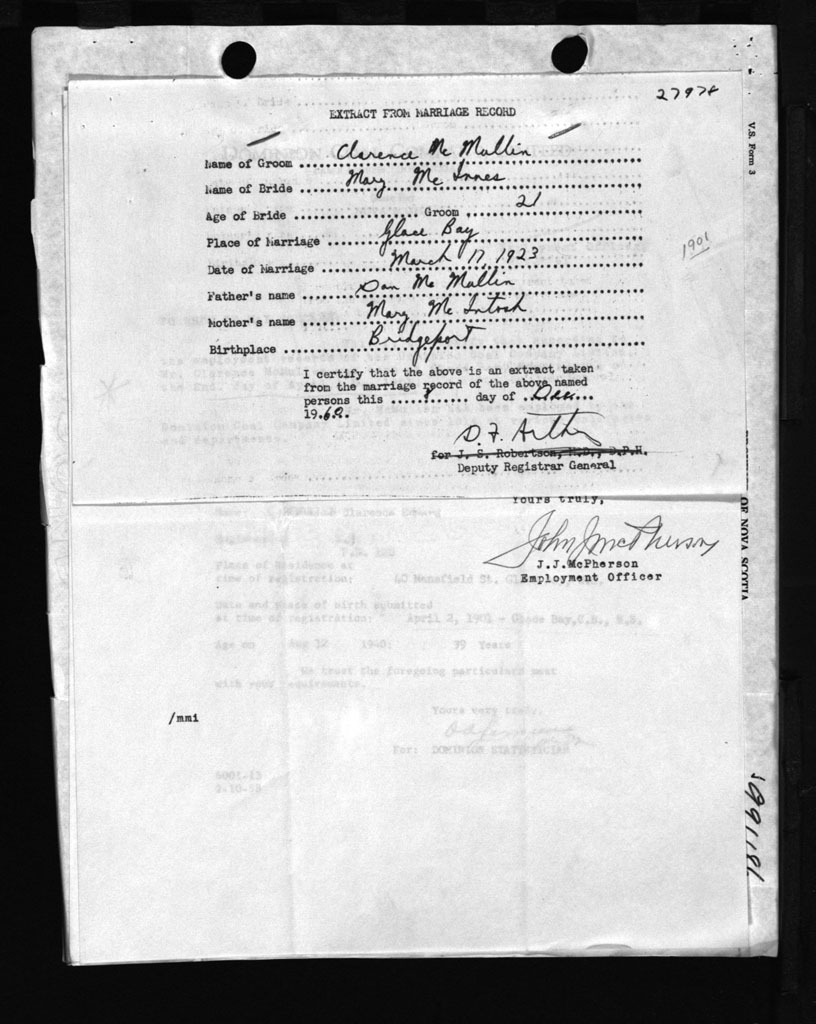 27978
EXTRACT FROM MARRIAGE RECORD
V.S. Form 3
Name of Groom Clarence Mc Mullin
Name of Bride Mary Mc Innes
Age of Bride Groom 21
Place of Marriage Glace Bay
1901
Date of Marriage March 17, 1923
Father's name Dan Mc Mullin
Mother's name Mary Mc Intosh
Birthplace Bridgeport
I certify that the above is an extract taken
from the marriage record of the above named
persons this 8 day of Dec
1960.
for J. S. Robertson, M.D., D.P.H.
Deputy Registrar General
Yours truly,
OF NOVA SCOTIA
John J McPherson
J.J.McPherson
Employment Officer
time of registration: 40 Mansfield St.
Date and place of birth submitted
at time of registration: April 2, 1901 - Glace Bay, C.B., N.S.
Age on Aug 12 1940: 39 Years
We trust the foregoing particulars meet
with your requirements.
/mmi
Yours very truly,
For: DOMINION STATISTICIAN